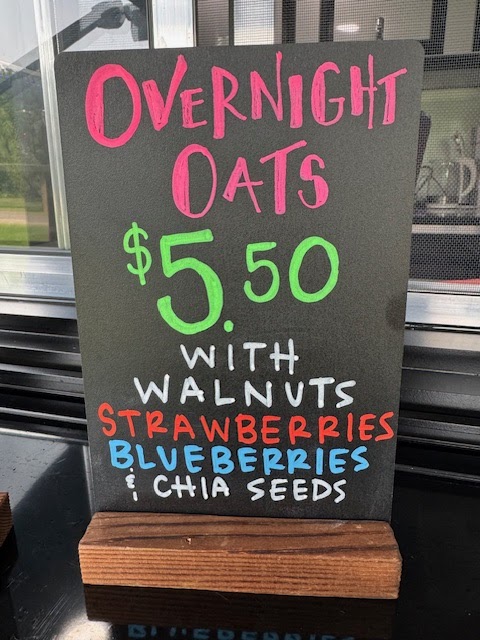 OVERNIGHT
OATS
$5.50
WITH
WALNUTS
STRAWBERRIES
BLUEBERRIES
& CHIA SEEDS
BLUEBERRIES